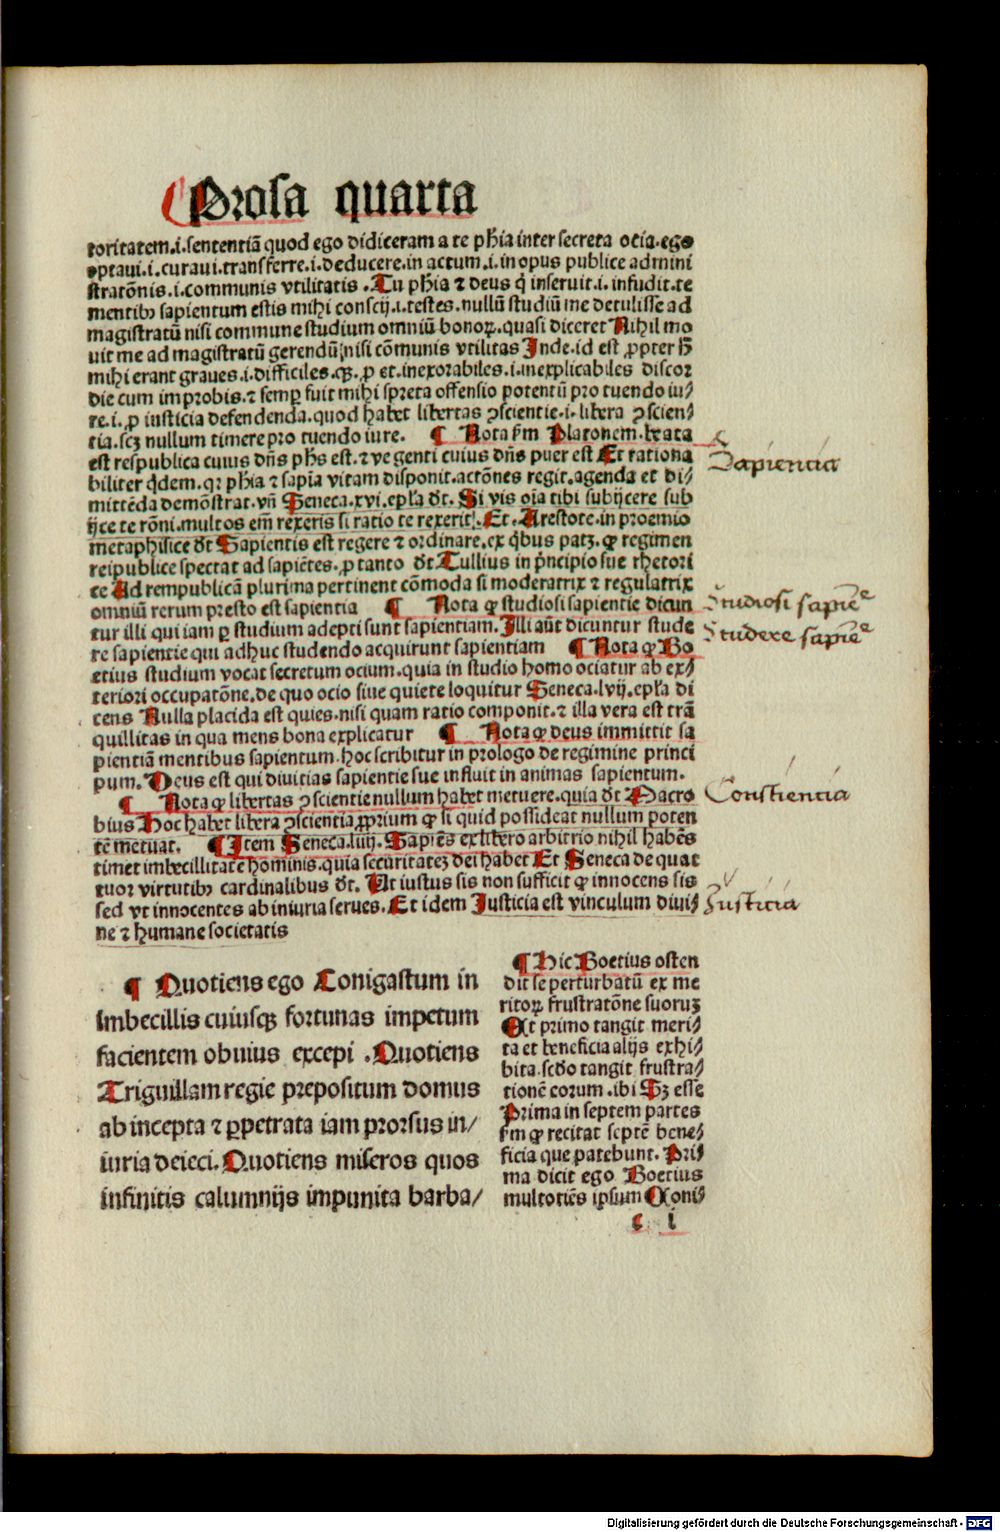 Prosa quarta
toritatem.i.sententiã quod ego didiceram a te phĩa inter secreta ocia.ego
optaui.i.curaui.transferre.i.deducere.in actum.i.in opus publice admini
stratõnis.i.communis vtilitatis .Tu phĩa ⁊ deus q̃ inseruit.i.infudit.te
mentibꝰ sapientum estis mihi conscij.i.testes.nullũ studiũ me detulisse ad
magistratũ nisi commune studium omniũ bonoꝝ.quasi diceret Nihil mo
uit me ad magistratũ gerendũ nisi cõmunis vtilitas Inde.id est ꝓpter h̃
mihi erant graues.i.difficiles.qꝫ.ꝓ et.inexorabiles.i.inexplicabiles discor
die cum improbis.⁊ semꝑ fuit mihi spreta offensio potentũ pro tuendo iu⸗
re.i.ꝓ iusticia defendenda.quod habet libertas ꝯscientie.i.libera ꝯscien⸗
tia.scꝫ nullum timere pro tuendo iure. ¶ Nota ẜm Platonem.beata
est respublica cuius dñs phũs est.⁊ ve genti cuius dñs puer est Et rationa
biliter q̃dem.qꝛ phĩa ⁊ sapĩa vitam disponit.actõnes regit.agenda et di⸗
mittẽda demõstrat.vñ Seneca.xvi.epl̃a d̃t. Si vis oĩa tibi subijcere sub
ijce te rõni.multos em̃ rexeris si ratio te rexerit. Et.Arestote.in proemio
metaphisice d̃t Sapientis est regere ⁊ ordinare.ex q̃bus patꝫ.ꝙ regimen
reipublice spectat ad sapiẽtes.ꝓ tanto d̃t Tullius in p̃ncipio sue rhetori
ce Ad rempublicã plurima pertinent cõmoda si moderatrix ⁊ regulatrix
omniũ rerum presto est sapientia ¶ Nota ꝙ studiosi sapientie dicun
tur illi qui iam ꝑ studium adepti sunt sapientiam. Illi aũt dicuntur stude
re sapientie qui adhuc studendo acquirunt sapientiam ¶ Nota ꝙ Bo
etius studium vocat secretum ocium.quia in studio homo ociatur ab ex⸗
teriori occupatõne.de quo ocio siue quiete loquitur Seneca.lvij.epl̃a di
cens Nulla placida est quies.nisi quam ratio componit.⁊ illa vera est trã
quillitas in qua mens bona explicatur ¶ Nota ꝙ deus immittit sa
pientiã mentibus sapientum.hoc scribitur in prologo de regimine princi
pum. Deus est qui diuitias sapientie sue influit in animas sapientum.
¶ Nota ꝙ libertas ꝯscientie nullum habet metuere.quia d̃t Macro
bius Hoc habet libera ꝯscientia ꝓprium ꝙ si quid possideat nullum poten
tẽ metuat. ¶ Item Seneca.liiij. Sapiẽs ex libero arbitrio nihil habẽs
timet imbecillitatẽ hominis.quia securitatez dei habet Et Seneca de quat
tuor virtutibꝰ cardinalibus d̃t. Ut iustus sis non sufficit ꝙ innocens sis
sed vt innocentes ab iniuria serues. Et idem Iusticia est vinculum diui⸗
ne ⁊ humane societatis
Sapiencia
Studiosi sapiẽe
Studere sapiẽe
Consciencia
Iusticia
¶ Quotiens ego Conigastum in
imbecillis cuiusqꝫ fortunas impetum
facientem obuius excepi .Quotiens
Triguillam regie prepositum domus
ab incepta ⁊ ꝑpetrata iam prorsus in⸗
iuria deieci. Quotiens miseros quos
infinitis calumnijs impunita barba⸗
¶ Hic Boetius osten
dit se perturbatũ ex me
ritoꝝ frustratõne suoruꝫ
Et primo tangit meri⸗
ta et beneficia alijs exhi⸗
bita.scđo tangit frustra⸗
tionẽ eorum .ibi Sꝫ esse
Prima in septem partes
ẜm ꝙ recitat septẽ bene⸗
ficia que patebunt. Pri⸗
ma dicit ego Boetius
multotiẽs ipsum Coni⸗
c i
Digitalisierung gefördert durch die Deutsche Forschungsgemeinschaft - DFG